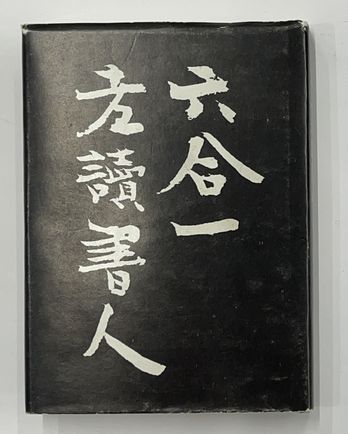 六合一
老讀書人